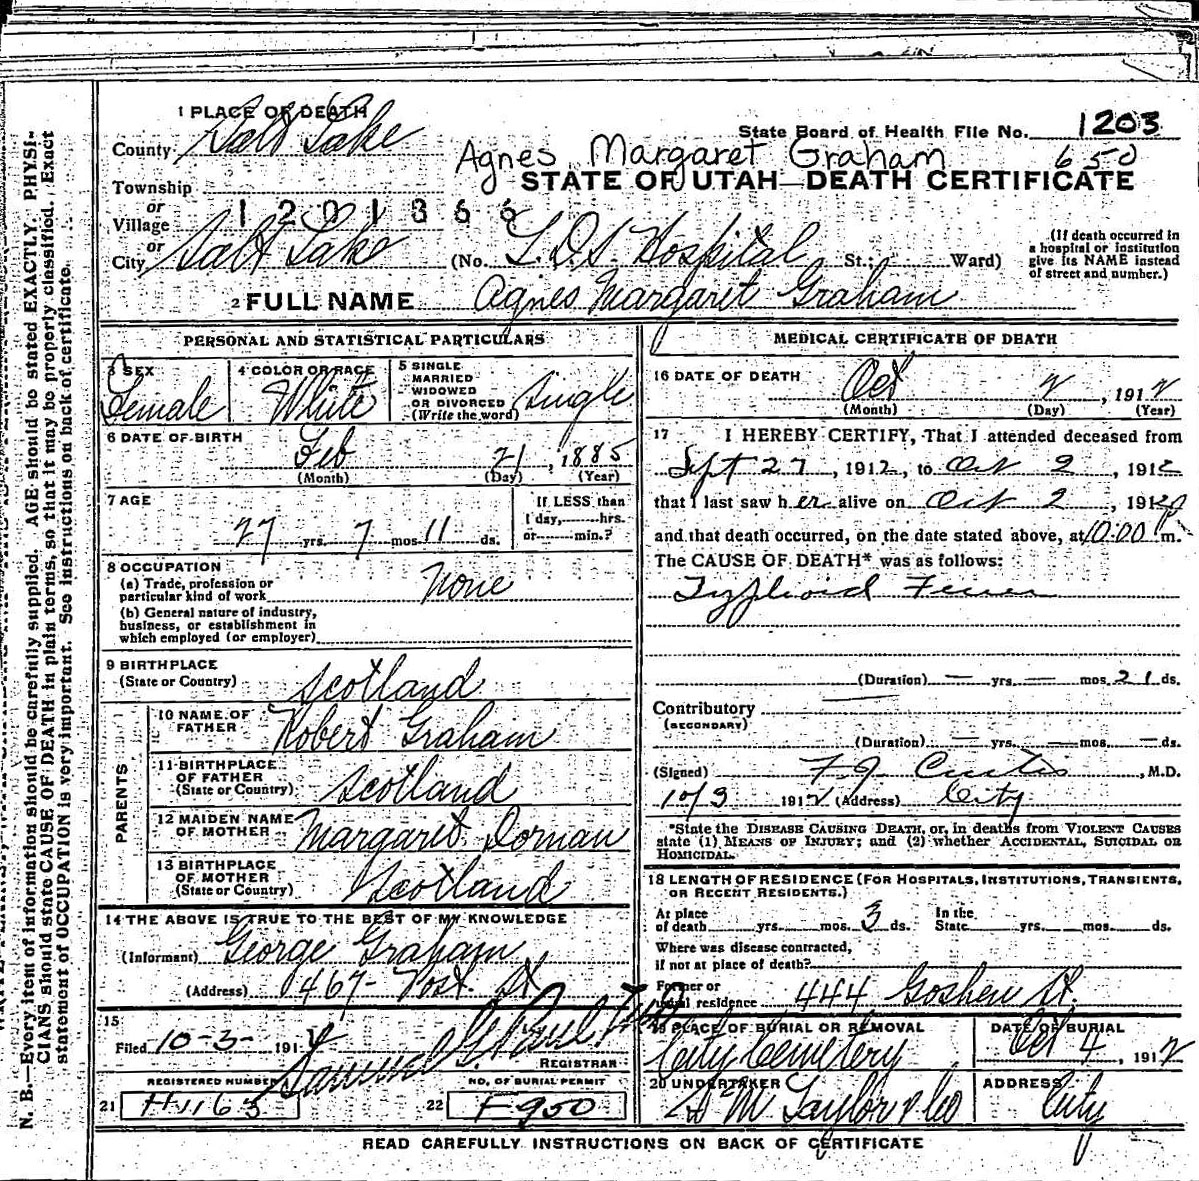 1 PLACE OF DEATH
County Salt Lake
State Board of Health File No. 1203
650
Agnes Margaret Graham
STATE OF UTAH—DEATH CERTIFICATE
Township
or
Village
1201366
or
City Salt Lake (No. L.D.S. Hospital St.; Ward)
(If death occurred in a hospital or institution give its NAME instead of street and number.)
2 FULL NAME Agnes Margaret Graham
PERSONAL AND STATISTICAL PARTICULARS
3 SEX Female
4 COLOR OR RACE White
5 SINGLE MARRIED WIDOWED OR DIVORCED (Write the word) Single
6 DATE OF BIRTH
Feb 21, 1885
(Month) (Day) (Year)
7 AGE
27 yrs. 7 mos. 11 ds.
If LESS than
1 day,......hrs.
or......min.?
8 OCCUPATION
(a) Trade, profession or particular kind of work None
(b) General nature of industry, business, or establishment in which employed (or employer)
9 BIRTHPLACE
(State or Country) Scotland
PARENTS
10 NAME OF FATHER Robert Graham
11 BIRTHPLACE OF FATHER (State or Country) Scotland
12 MAIDEN NAME OF MOTHER Margaret Dornan
13 BIRTHPLACE OF MOTHER (State or Country) Scotland
14 THE ABOVE IS TRUE TO THE BEST OF MY KNOWLEDGE
(Informant) George Graham
(Address) 467 Post St
15
Filed 10-3- 191
REGISTRAR
REGISTERED NUMBER
21 H1163
NO. OF BURIAL PERMIT
22 F950
MEDICAL CERTIFICATE OF DEATH
16 DATE OF DEATH
Oct 2, 1912
(Month) (Day) (Year)
17 I HEREBY CERTIFY, That I attended deceased from
Sept 27, 1912, to Oct 2, 1912
that I last saw her alive on Oct 2, 1912
and that death occurred, on the date stated above, at 10:00 P m.
The CAUSE OF DEATH* was as follows:
Typhoid Fever
(Duration) — yrs. — mos. 21 ds.
Contributory
(SECONDARY)
(Duration) — yrs. — mos. — ds.
(Signed) F J Curtis, M.D.
10/3 1912 (Address) City
*State the DISEASE CAUSING DEATH, or, in deaths from VIOLENT CAUSES
state (1) MEANS OF INJURY; and (2) whether ACCIDENTAL, SUICIDAL OR
HOMICIDAL.
18 LENGTH OF RESIDENCE (FOR HOSPITALS, INSTITUTIONS, TRANSIENTS,
OR RECENT RESIDENTS.)
At place of death yrs. mos. 3 ds. In the State yrs. mos. ds.
Where was disease contracted,
if not at place of death?
Former or
usual residence 444 Goshen St.
19 PLACE OF BURIAL OR REMOVAL
City Cemetery
DATE OF BURIAL
Oct 4, 1912
20 UNDERTAKER
S M Taylor & Co
ADDRESS
City
READ CAREFULLY INSTRUCTIONS ON BACK OF CERTIFICATE
N. B.—Every item of information should be carefully supplied. AGE should be stated EXACTLY. PHYSI-
CIANS should state CAUSE OF DEATH in plain terms, so that it may be properly classified. Exact
statement of OCCUPATION is very important. See instructions on back of certificate.